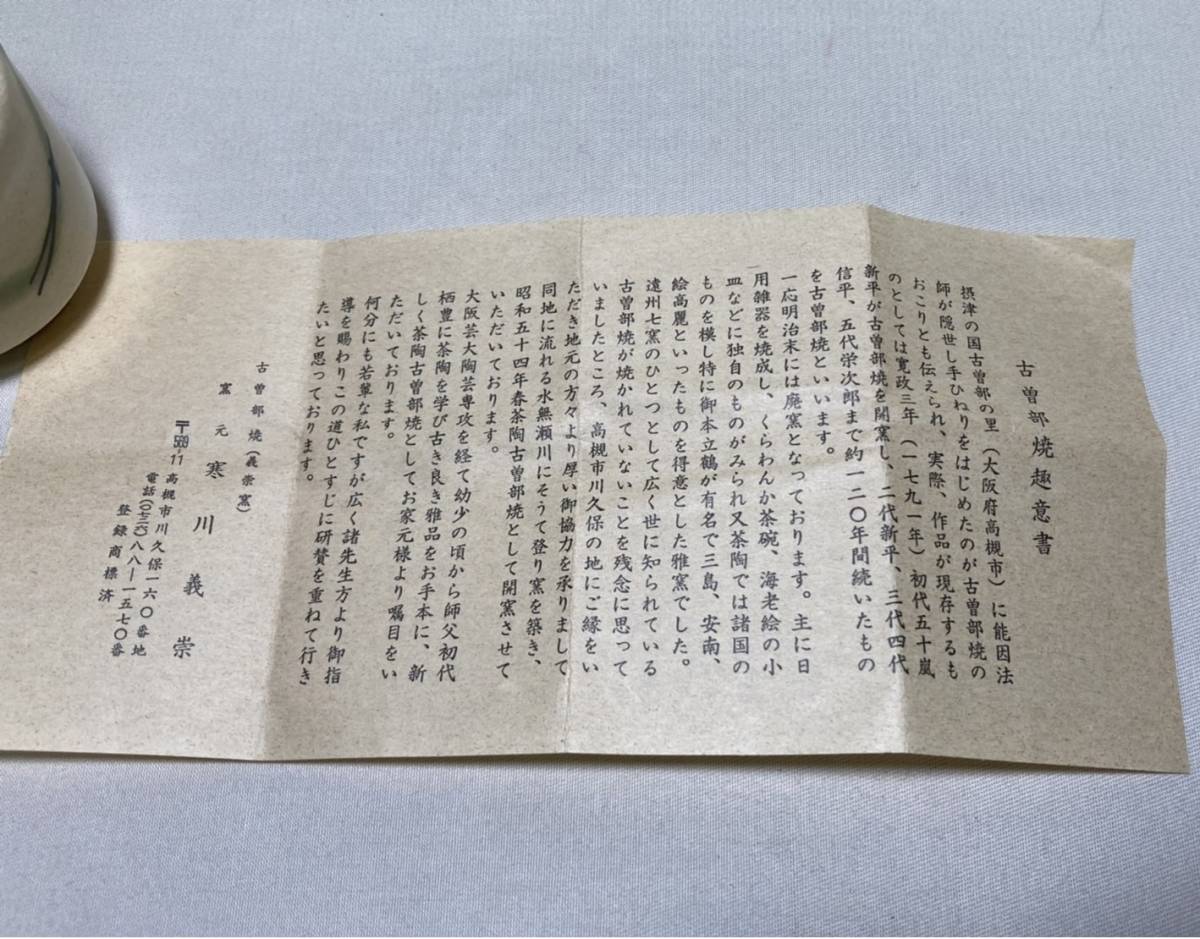 古曽部焼趣意書
摂津の国古曽部の里（大阪府高槻市）に能因法
師が隠世し手ひねりをはじめたのが古曽部焼の
おこりとも伝えられ、実際、作品が現存するも
のとしては寛政三年（一七九一年）初代五十嵐
新平が古曽部焼を開窯し、二代新平、三代四代
信平、五代栄次郎まで約一二〇年間続いたもの
を古曽部焼といいます。
一応明治末には廃窯となっております。主に日
用雑器を焼成し、くらわんか茶碗、海老絵の小
皿などに独自のものがみられ又茶陶では諸国の
ものを模し特に御本立鶴が有名で三島、安南、
絵高麗といったものを得意とした雅窯でした。
遠州七窯のひとつとして広く世に知られている
古曽部焼が焼かれていないことを残念に思って
いましたところ、高槻市川久保の地にご縁をい
ただき地元の方々より厚い御協力を承りまして
同地に流れる水無瀬川にそうて登り窯を築き、
昭和五十四年春茶陶古曽部焼として開窯させて
いただいております。
大阪芸大陶芸専攻を経て幼少の頃から師父初代
栖豊に茶陶を学び古き良き雅品をお手本に、新
しく茶陶古曽部焼としてお家元様より嘱目をい
ただいております。
何分にも若輩な私ですが広く諸先生方より御指
導を賜わりこの道ひとすじに研賛を重ねて行き
たいと思っております。
古曽部焼（義崇窯）
窯元 寒川義崇
〒569-11 高槻市川久保一六〇番地
電話(〇七二六)八八―一五七〇番
登録商標済